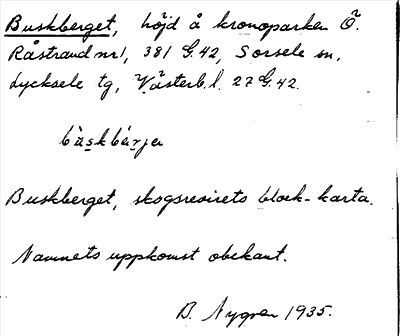 Buskberget, höjd å kronoparken Ö.
Råstrand nr 1, 381 G.42, Sorsele sn,
Lycksele tg, Västerb.l. 27 G.42.
Buskberget, skogsrevirets block-karta.
Namnets uppkomst obekant.
B. Nygren 1935.